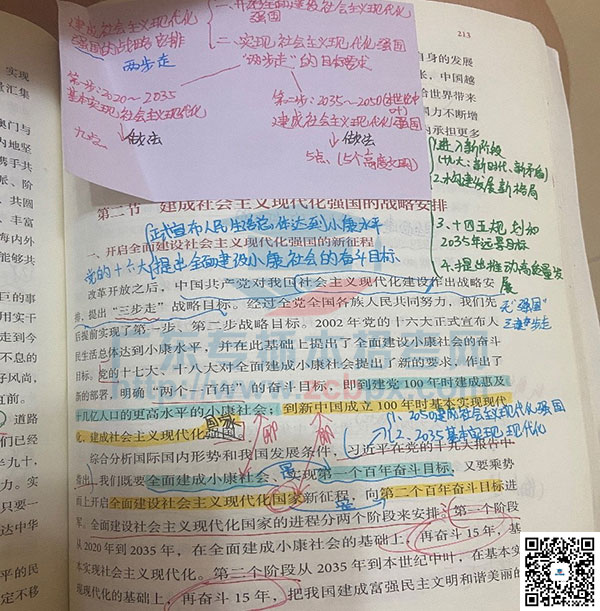 建成社会主义现代化
强国的战略安排
两步走
一、开启全面建设社会主义现代化
强国
二、实现社会主义现代化强国
"两步走"的目标要求
第一步：2020～2035
基本实现社会主义现代化
做法
九点
第二步：2035～2050(本世纪中叶)
建成社会主义现代化强国
做法
5点、(5个高度文明)
213
自身的发展
来，中国越
给世界带来
国力不断增
为承担更多
实现
量汇集
澳门与
内地坚
携手共
派、阶
共圆
丰富
海内外
能够共
巨的事
用实干
走到今
不息的
好风尚，
直前。
道路
们已经
半九十，
力。实
只要一
达中华
平的民
定不移
1.进入新阶段
(十九大：新时代、新矛盾)
2.构建发展新格局
3.十四五规划和
2035年远景目标
4.提出推动高质量发
展
第二节 建成社会主义现代化强国的战略安排
正式宣布人民生活总体达到小康水平
一、开启全面建设社会主义现代化强国的新征程
党的十六大提出全面建设小康社会的奋斗目标
改革开放之后，中国共产党对我国社会主义现代化建设作出战略安
排，提出“三步走”战略目标。经过全党全国各族人民共同努力，我们先
后提前实现了第一步、第二步战略目标。2002年党的十六大正式宣布人
民生活总体达到小康水平，并在此基础上提出了全面建设小康社会的奋斗
目标。党的十七大、十八大对全面建成小康社会提出了新的要求，作出了
新的部署，明确“两个一百年”的奋斗目标，即到建党100年时建成惠及
十几亿人口的更高水平的小康社会；到新中国成立100年时基本实现现代
化，建成社会主义现代化国家
无"强国"
1.2050建成社会主义现代化强国
2.2035基本实现现代化
综合分析国际国内形势和我国发展条件，习近平在党的十九大报告中
指出，我们既要全面建成小康社会、实现第一个百年奋斗目标，又要乘势
而上开启全面建设社会主义现代化国家新征程，向第二个百年奋斗目标进
军。全面建设社会主义现代化国家的进程分两个阶段来安排：第一个阶段
从2020年到2035年，在全面建成小康社会的基础上，再奋斗15年，基
本实现社会主义现代化。第二个阶段从2035年到本世纪中叶，在基本实
现现代化的基础上，再奋斗15年，把我国建成富强民主文明和谐美丽的